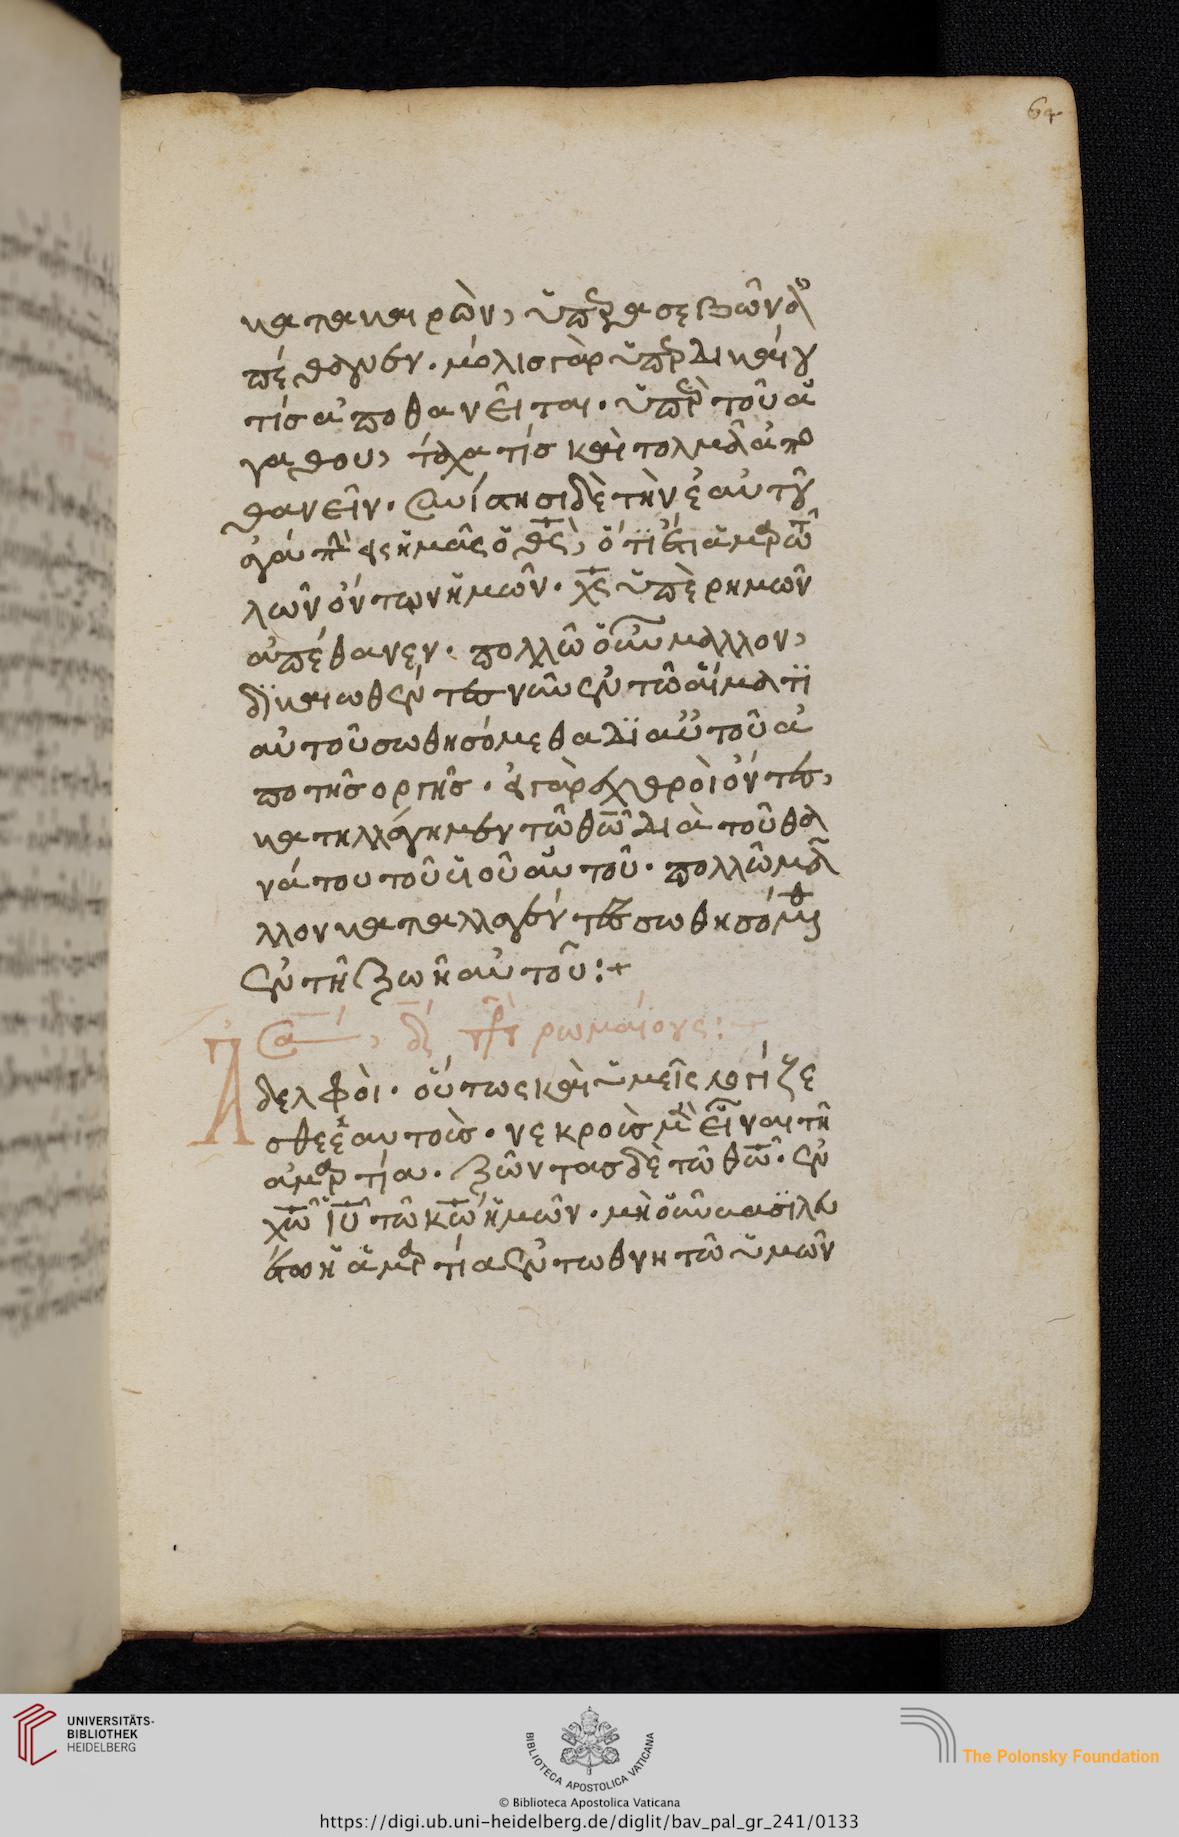 64
κατα καιρὸν, ὑπὲρ ἀσεβῶν ἀ
πέθανεν. μόλις γὰρ ὑπὲρ δικαίου
τίς ἀποθανεῖται. ὑπὲρ τοῦ ἀ
γαθου, τάχα τίς καὶ τολμᾶ ἀπο
θανεῖν. συνίστησι δὲ τὴν ἑαυτοῦ
ἀγάπην εἰς ἡμᾶς ὁ θς, ὅτι ἔτι ἁμαρτω
λῶν ὄντων ἡμῶν. χς ὑπὲρ ημῶν
ἀπέθανεν. πολλῶ οὖν μαλλον,
δϊκαιωθέντες νῦν ἐν τῶ αἵματϊ
αὐτοῦ σωθησόμεθα δϊ αὐτοῦ ἀ
πο τῆς οργῆς. εἰ γὰρ ἐχθροὶ ὄντες,
κατηλλάγημεν τῶ θῶ διὰ τοῦ θα
νάτου τοῦ υἱοῦ αὐτοῦ. πολλῶ μᾶ
λλον καταλλαγέντες σωθησόμεθα
ἐν τῆ ζωῆ αὐτοῦ:+
πρὸς ρωμαίους:
Ἀδελφὸι. οὕτως καὶ ὑμεῖς λογίζε
σθε ἑαυτοὺς. νεκροὺς μὲν εἶναι τῆ
ἁμαρτία. ζῶντας δὲ τῶ θῶ. ἐν
χῶ ἰῦ τῶ κῶ ἡμῶν. μὴ οὖν βασϊλευ
έτω ἡ ἁμαρτία ἐν τω θνητῶ ὑμῶν
UNIVERSITÄTS-
BIBLIOTHEK
HEIDELBERG
BIBLIOTECA APOSTOLICA VATICANA
The Polonsky Foundation
© Biblioteca Apostolica Vaticana
https://digi.ub.uni-heidelberg.de/diglit/bav_pal_gr_241/0133